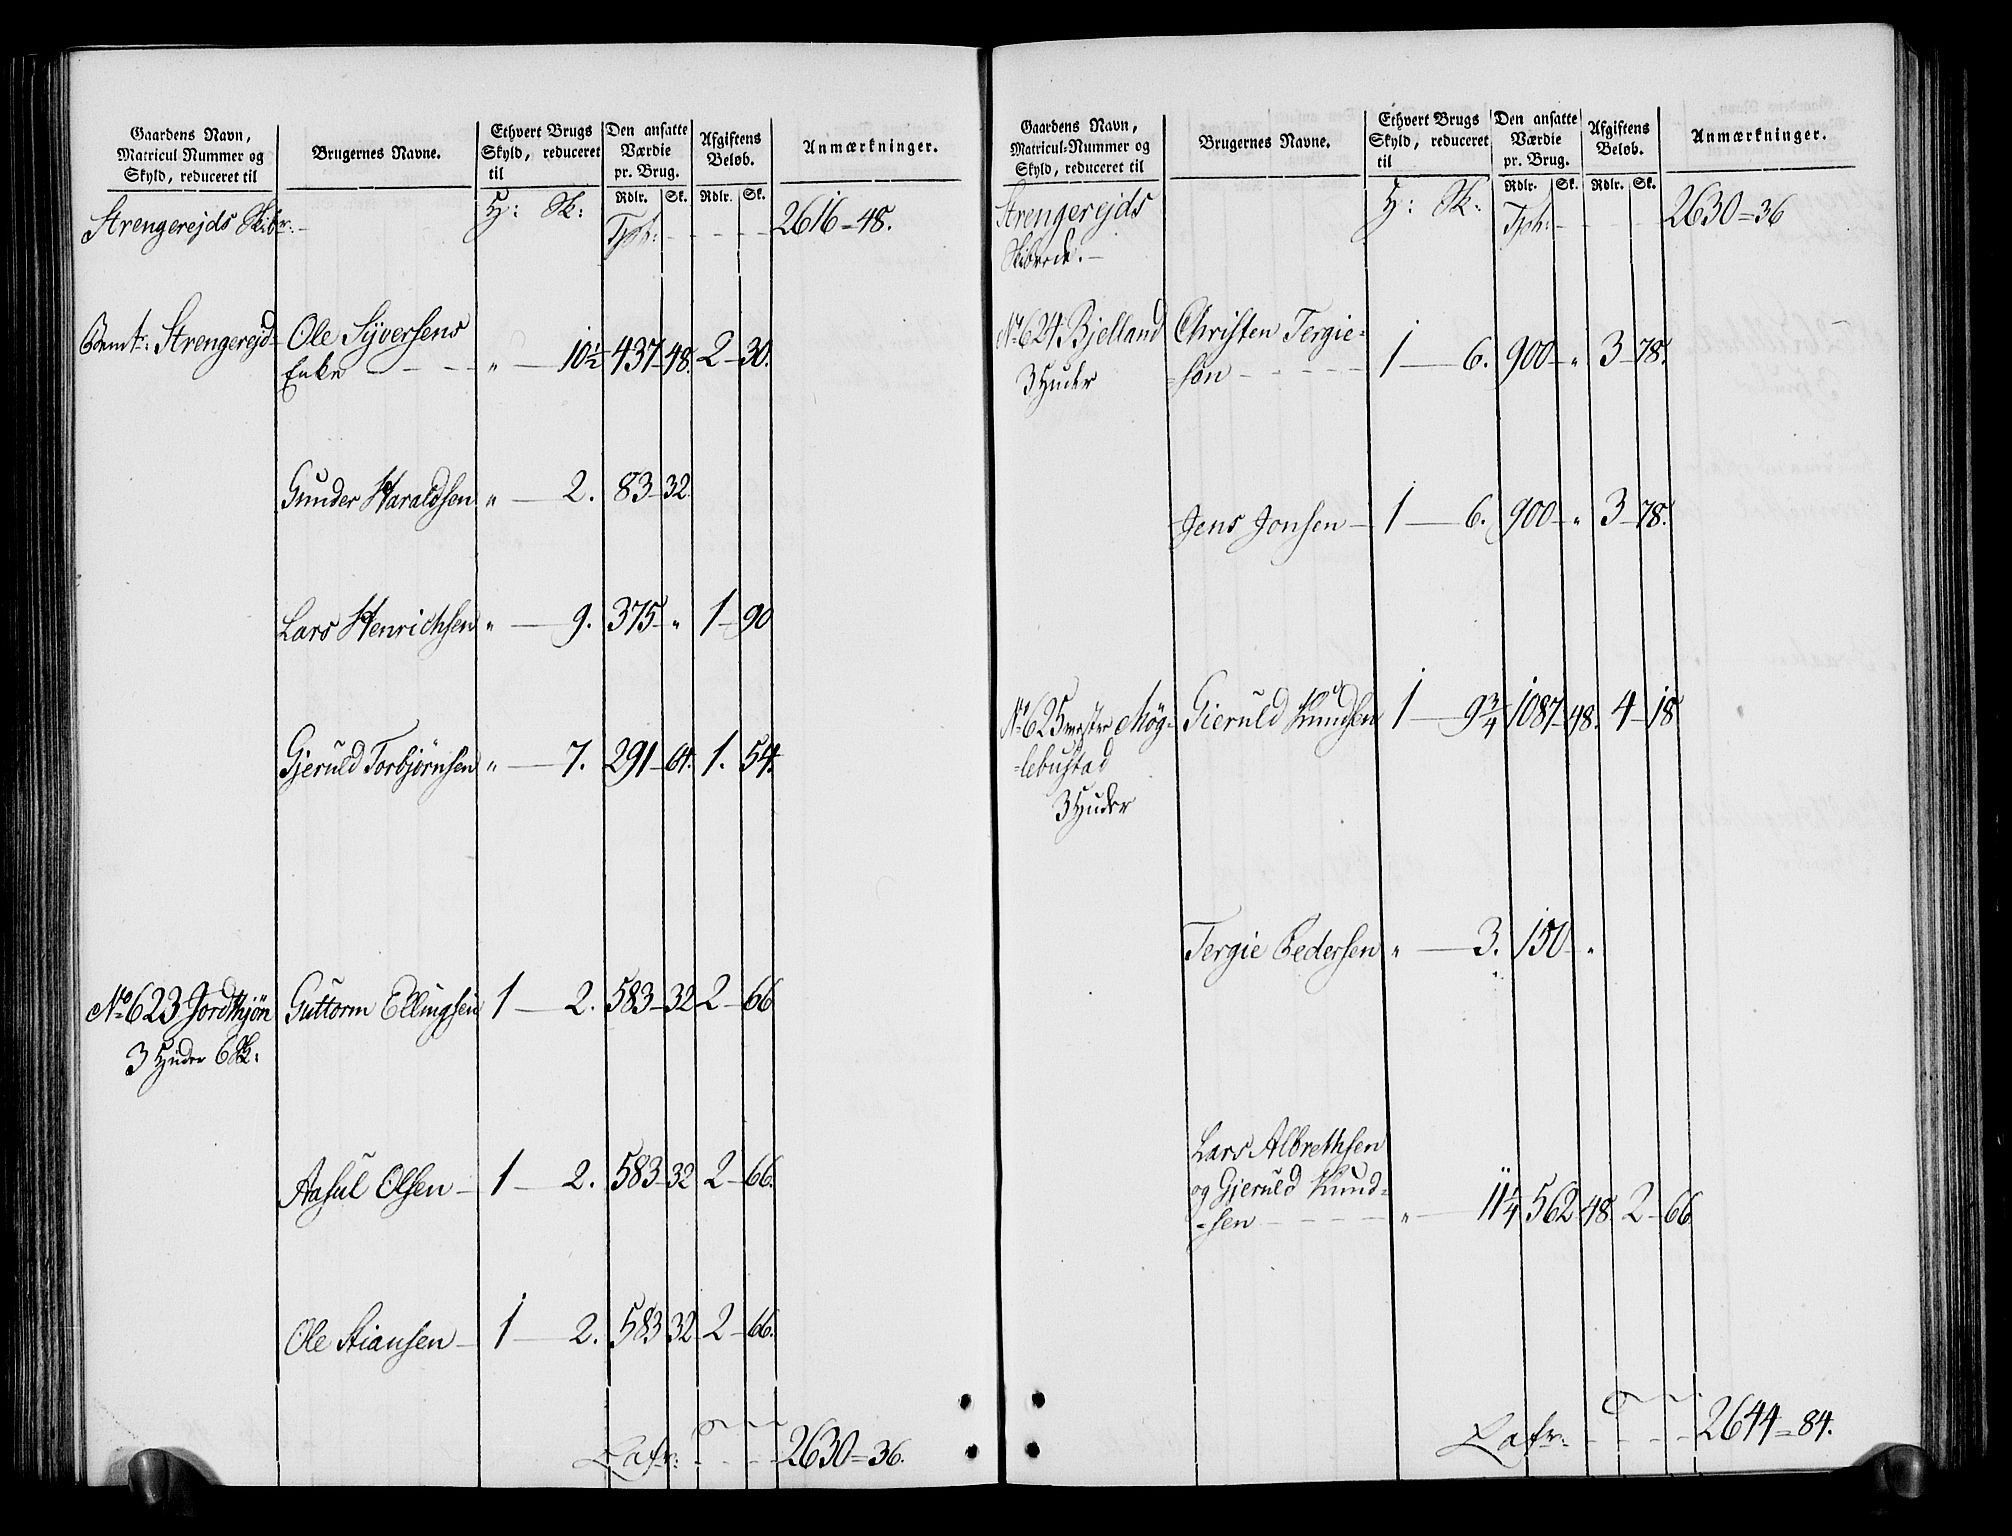 Gaardens Navn,
Matricul Nummer og
Skyld, reduceret til
Brugernes Navne.
Ethvert Brugs
Skyld, reduceret
til
Den ansatte
Værdie
pr. Brug.
Afgiftens
Beløb.
Anmærkninger.
Rdlr. Sk. Rdlr. Sk.
Strengerejds Skibr: H: Sk: Tpt: 2616 = 48.
Strengerejd Ole Syversens
Enke " 10½ 437 48. 2 30.
Gunder Haraldsen " 2. 83 32.
Lars Henrichsen " 9. 375 " 1 90
Gjeruld Torbjørnsen " 7. 291 64. 1. 54.
No 623 Jordkjøn Guttorm Ellingsen 1 2. 583 32 2 66
3 Huder 6 Sk:
Aasul Olsen 1 2. 583 32 2 66.
Ole Stiansen 1 2. 583 32 2 66.
Lafr: 2630 = 36.
Gaardens Navn,
Matricul-Nummer og
Skyld, reduceret til
Brugernes Navne.
Ethvert Brugs
Skyld, reduceret
til
Den ansatte
Værdie
pr. Brug.
Afgiftens
Beløb.
Anmærkninger.
Rdlr. Sk. Rdlr. Sk.
Strengerejds H: Sk: Tpt: 2630 = 36
Skibrede.
No 624 Bjelland Christen Tergie=
3 Huder =søn 1 6. 900 " 3 78.
Jens Jonsen 1 6. 900 " 3 78.
No 625 vestre Møg= Gieruld Knudsen 1 9¾ 1087 48. 4 18
=lebustad
3 Huder
Tergie Pedersen " 3. 150 "
Lars Albrethsen
og Gjeruld Knud=
=sen " 11¼ 562 48. 2 66.
Lafr: 2644 = 84.